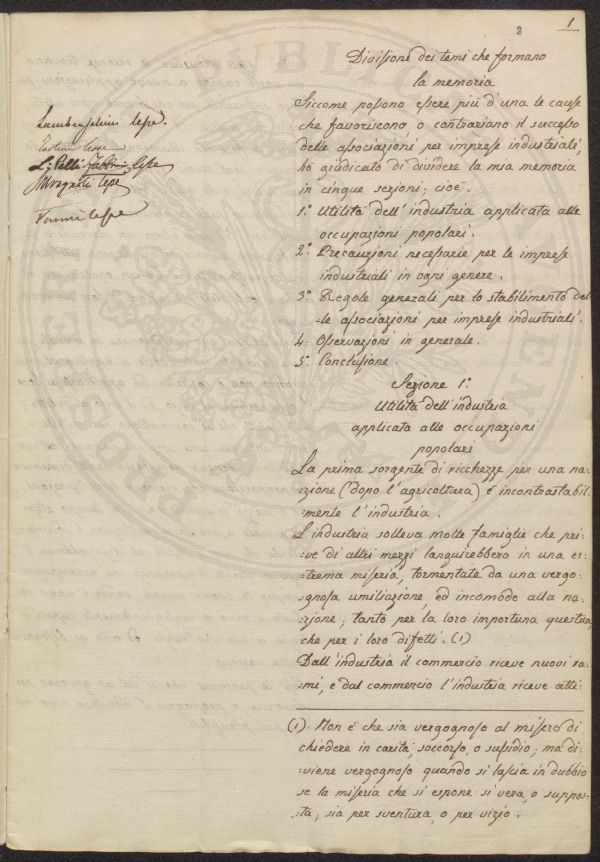 2
1
Divisione dei temi che formano
la memoria
Lambruschini lesse.
Siccome possono essere più d'una le cause
che favoriscono, o contrariano il successo
delle associazioni per imprese industriali,
ho giudicato di dividere la mia memoria
in cinque sezioni; cioè.
1.° Utilità dell'industria applicata alle
occupazioni popolari.
2.° Precauzioni necessarie per le imprese
industriali in ogni genere.
3.° Regole generali per lo stabilimento del=
=le associazioni per imprese industriali.
4. Osservazioni in generale.
5. Conclusione.
Sezione 1.
Utilità dell'industria
applicata alle occupazioni
popolari
La prima sorgente di ricchezze per una na=
=zione (dopo l'agricoltura) è incontrastabil=
=mente l'industria.
L'industria solleva molte famiglie che pri=
=ve di altri mezzi languirebbero in una es=
trema miseria, tormentate da una vergo=
=gnosa umiliazione, ed incomode alla na=
=zione; tanto per la loro importuna questua,
che per i loro difetti. (1)
Dall'industria il commercio riceve nuovi ra=
=mi, e dal commercio l'industria riceve atti=
(1). Non è che sia vergognoso al misero di
chiedere in carità, soccorso, o sussidio; ma di=
=viene vergognoso quando si lascia in dubbio
se la miseria che si espone si vera, o suppos=
=ta; sia per sventura, o per vizio.